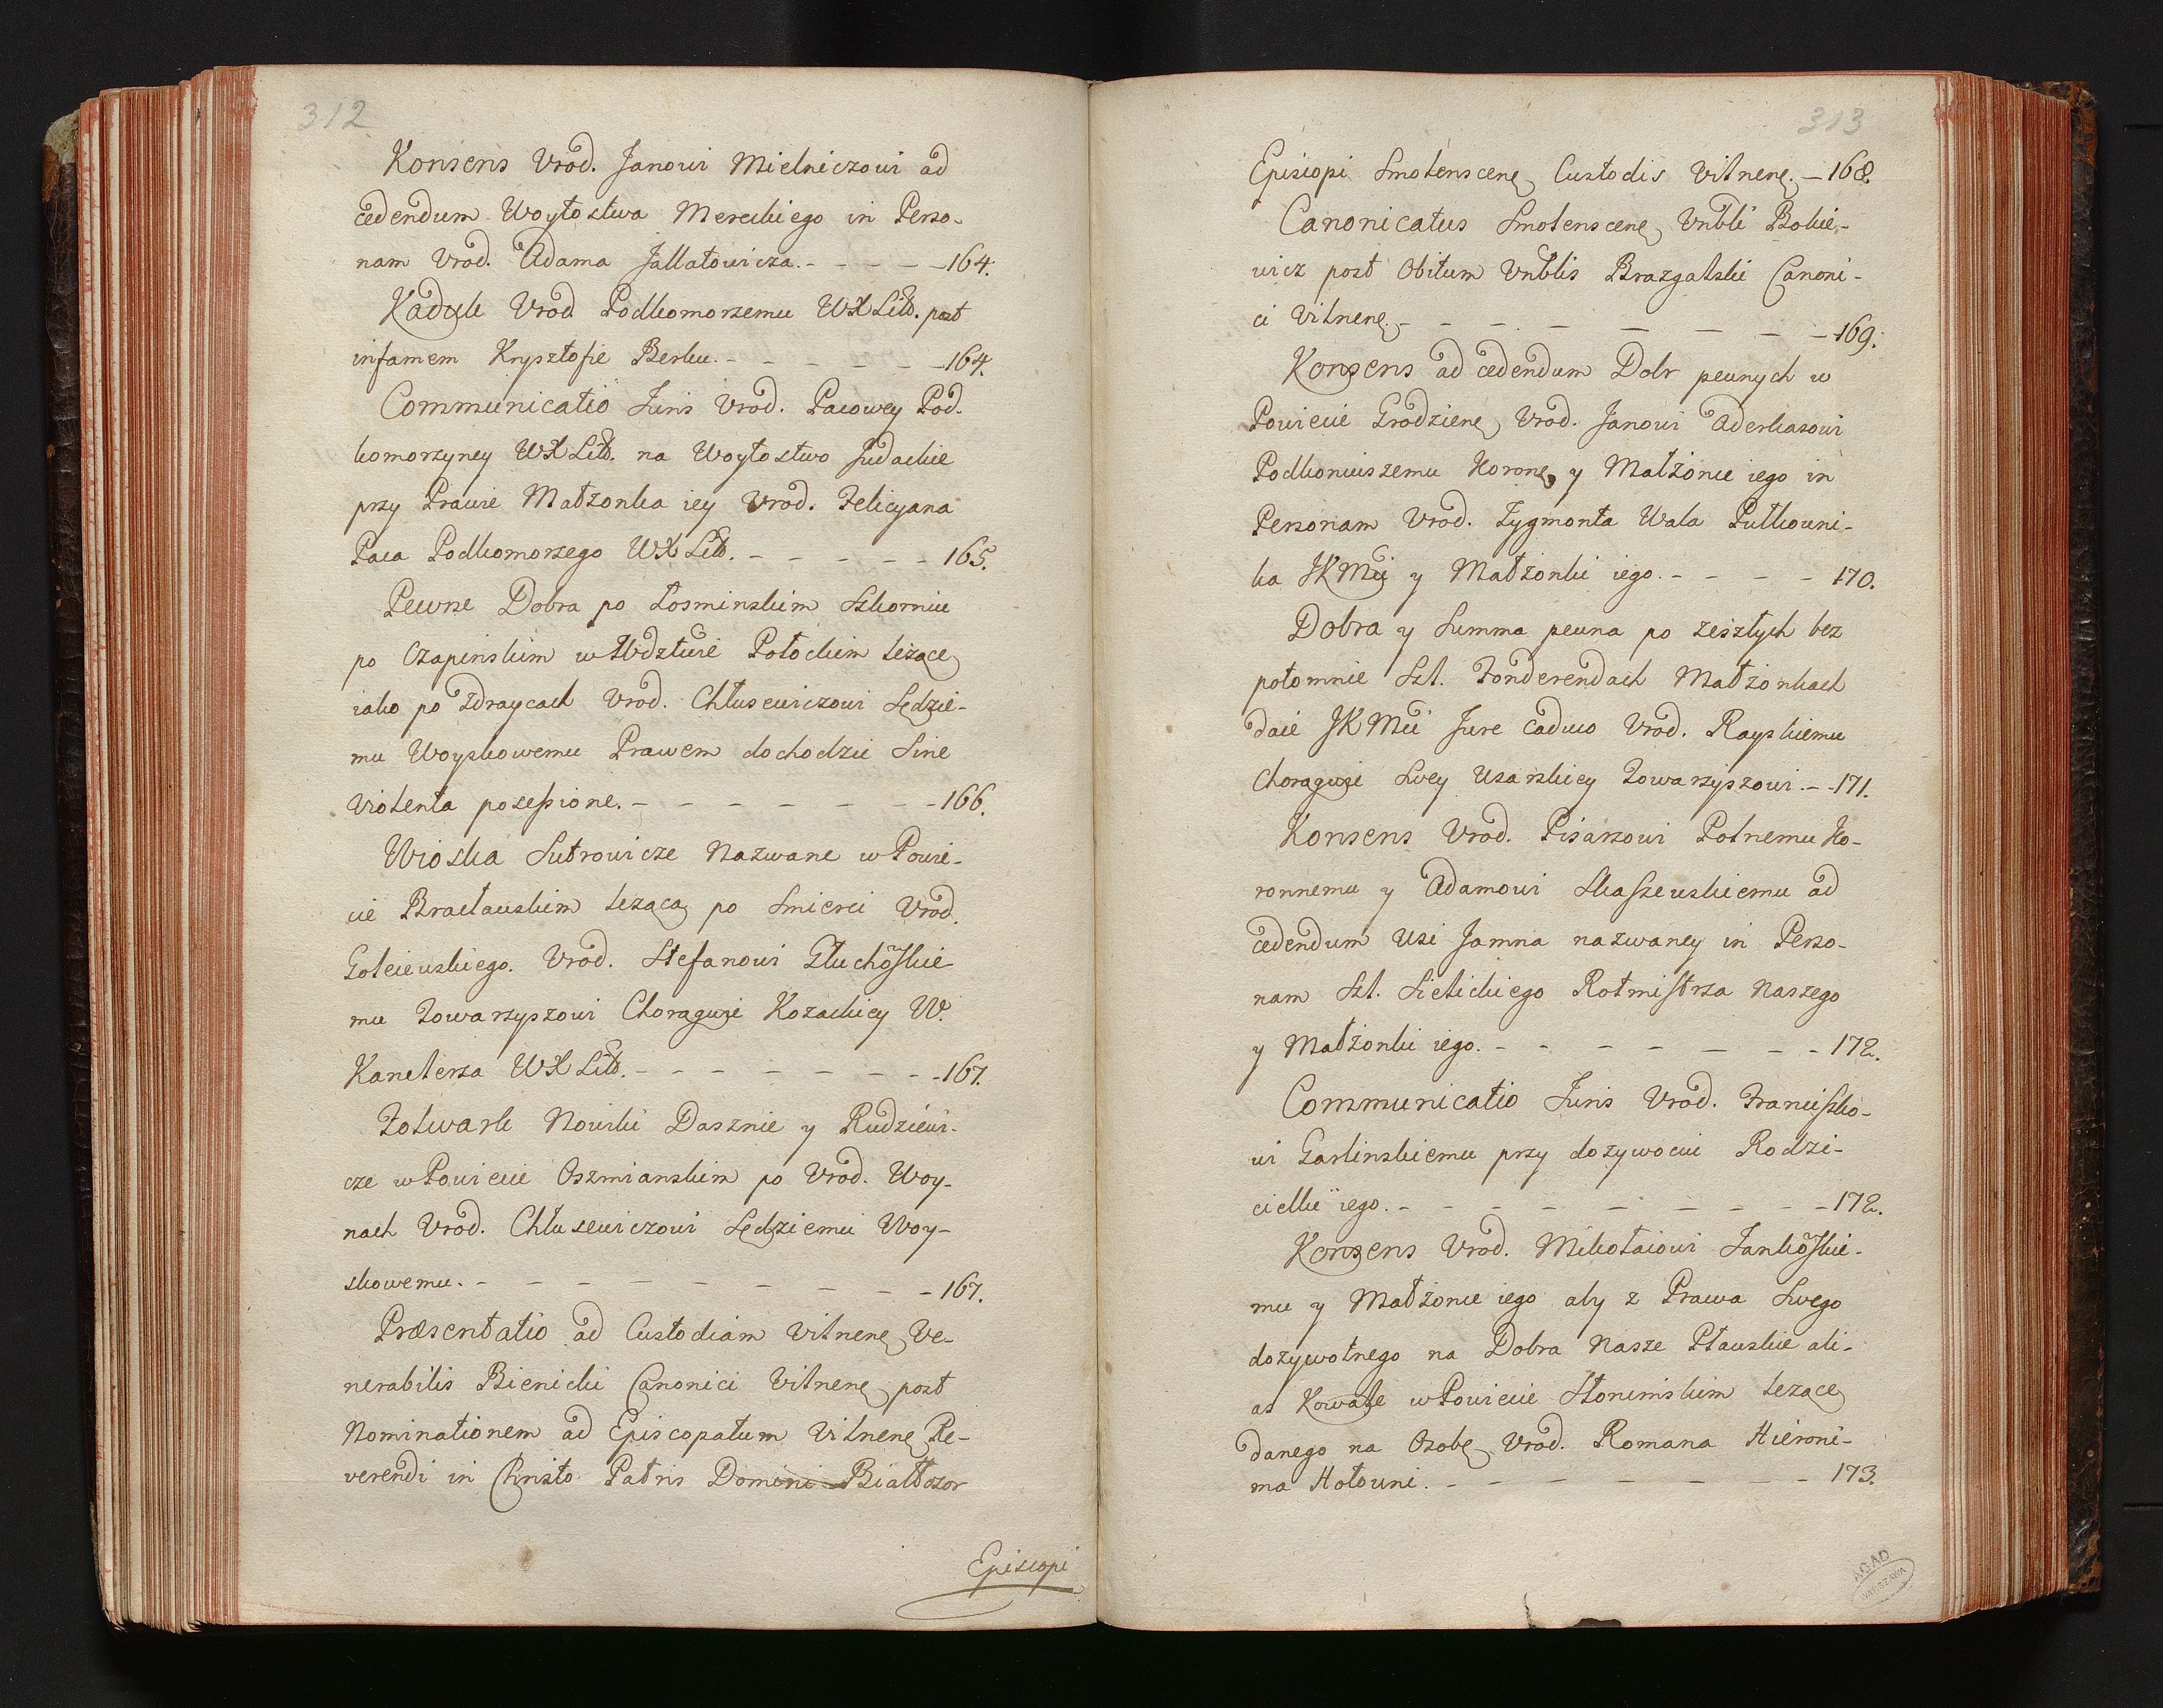 312
Konsens Vrod. Janowi Mielniczowi ad
cedendum Woytostwa Mereckiego in Perso-
nam Vrod. Adama Jallatowicza. - - - - 164.
Kaduk Vrod. Podkomorzemu WXLitt. post
infamem Krysztofie Berku. - - - - - 164.
Communicatio Juris Vrod. Pacowey Pod-
komorzyney WXLitt. na Woytostwo Judackie
przy Prawie Małżonka iey Vrod. Felicyana
Paca Podkomorzego WXLitt. - - - - - 165.
Pewne Dobra po Łosminskim Szkorniu
po Czapinskim w Wdztwie Połockim leżące
iako po Zdraycach Vrod. Chłusewiczowi Sędzie-
mu Woyskowemu Prawem dochodzić Sine
violenta possessione. - - - - - - - 166.
Wioska Sutrowicze Nazwane w Powie-
cie Bracławskim leżącą po Smierci Vrod.
Goleiewskiego. Vrod. Stefanowi Głuchoskie-
mu Towarzyszowi Chorągwie Kozackiey W.
Kanclerza WXLitt. - - - - - - - 167.
Folwark Nowiki Dasznie y Rudziewi-
cze w Powiecie Oszmianskim po Vrod. Woy-
nach Vrod. Chłusewiczowi Sędziemu Woy-
skowemu. - - - - - - - - 167.
Præsentatio ad Custodiam Vilnenę Ve-
nerabilis Bienicki Canonici Vilnenę post
Nominationem ad Episcopatum Vilnenę Re-
verendi in Christo Patris Domini Białłozor
Episcopi
313
Episcopi Smolenscenę Custodis Vilnenę. - 168.
Canonicatus Smolenscenę Vnbli Bokie-
wicz post Obitum Vnblis Brazgalski Canoni-
ci Vilnenę. - - - - - - - 169.
Konsens ad cedendum Dobr pewnych w
Powiecie Grodzienę Vrod. Janowi Aderkasowi
Podkoniuszemu Koronę y Małżonce iego in
Personam Vrod. Zygmonta Wala Pułkowni-
ka JKMci y Małżonki iego. - - - - 170.
Dobra y Summa pewna po zeszłych bez
potomnie Szl. Fonderendach Małżonkach
daie JKMci Jure caduco Vrod. Rayskiemu
Chorągwie Swey Usarskiey Towarzyszowi. - - 171.
Konsens Vrod. Pisarzowi Polnemu Ko-
ronnemu y Adamowi Skaszewskiemu ad
cedendum Wsi Jamna nazwaney in Perso-
nam Szl. Sielickiego Rotmistrza Naszego
y Małżonki iego. - - - - - - - 172.
Communicatio Juris Vrod. Franciszko-
wi Garlinskiemu przy dożywociu Rodzi-
cielki iego. - - - - - - - - 172.
Konsens Vrod. Mikołaiowi Jankoskie-
mu y Małżonce iego aby z Prawa Swego
dożywotnego na Dobra Nasze Pławskie ali-
as Kowale w Powiecie Słonimskim leżące
danego na Osobę Vrod. Romana Hieroni-
ma Hołowni. - - - - - - 173.
AGAD
WARSZAWA